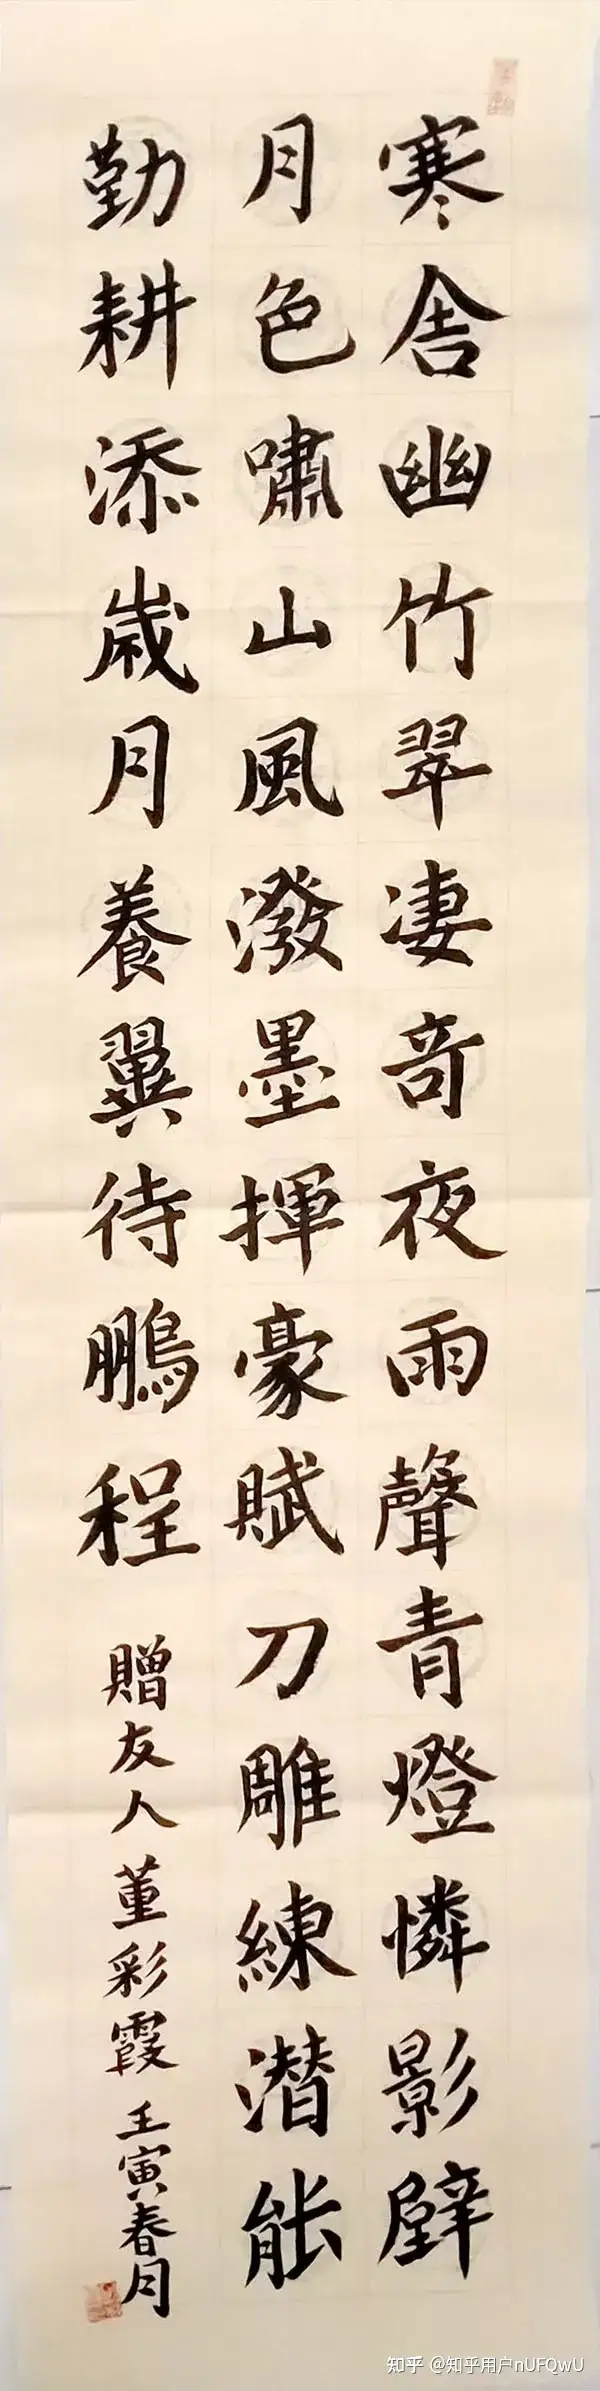 寒舍幽竹翠凄奇夜雨聲青燈憐影壁
月色嘯山風潑墨揮豪賦刀雕練潜能
勤耕添歲月養翼待鵬程 贈友人董彩霞 壬寅春月
知乎 @知乎用户nUFQwU